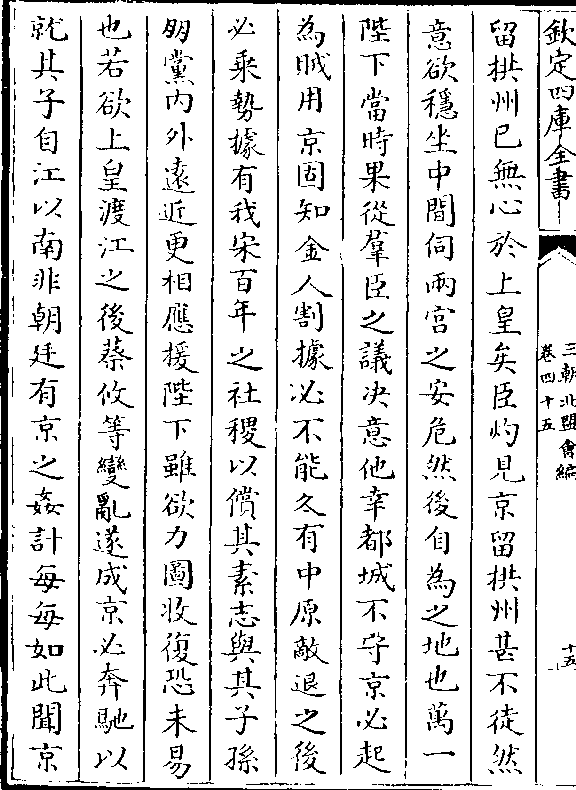 欽定四庫全書
三朝北盟會編
卷四十五
十五
留拱州已無心於上皇矣臣灼見京留拱州甚不徒然
意欲穩坐中間伺兩宮之安危然後自為之地也萬一
陛下當時果從羣臣之議決意他幸都城不守京必起
為賊用京固知金人割據必不能久有中原敵退之後
必乘勢據有我宋百年之社稷以償其素志與其子孫
朋黨內外遠近更相應援陛下雖欲力圖收復恐未易
也若欲上皇渡江之後蔡攸等變亂遂成京必奔馳以
就其子自江以南非朝廷有京之姦計每每如此聞京